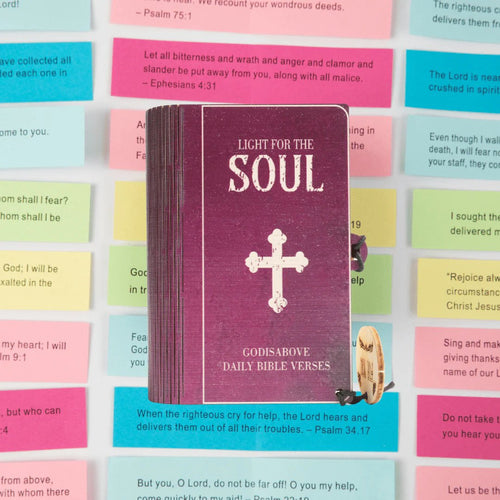 Lord!
We recount your wondrous deeds.
– Psalm 75:1
The righteous c
delivers them fr
ave collected all
ted each one in
Let all bitterness and wrath and anger and clamor and
slander be put away from you, along with all malice.
– Ephesians 4:31
The Lord is near
crushed in spirit
ome to you.
An
the
Fa
ning in
of
Even though I walk
death, I will fear no
your staff, they com
hom shall I fear?
hom shall I be
19
I sought the
delivered m
God; I will be
exalted in the
God
in tr
help
"Rejoice alw
circumstanc
Christ Jesus
my heart; I will
lm 9.1
Fea
be
you
Sing and mak
giving thanks
name of our L
d, but who can
:4
When the righteous cry for help, the Lord hears and
delivers them out of all their troubles. – Psalm 34.17
Do not take t
you hear you
from above,
with whom there
But you, O Lord, do not be far off! O you my help,
come quickly to my aid! – Psalm 22:19
Let us be th
LIGHT FOR THE
SOUL
GODISABOVE
DAILY BIBLE VERSES